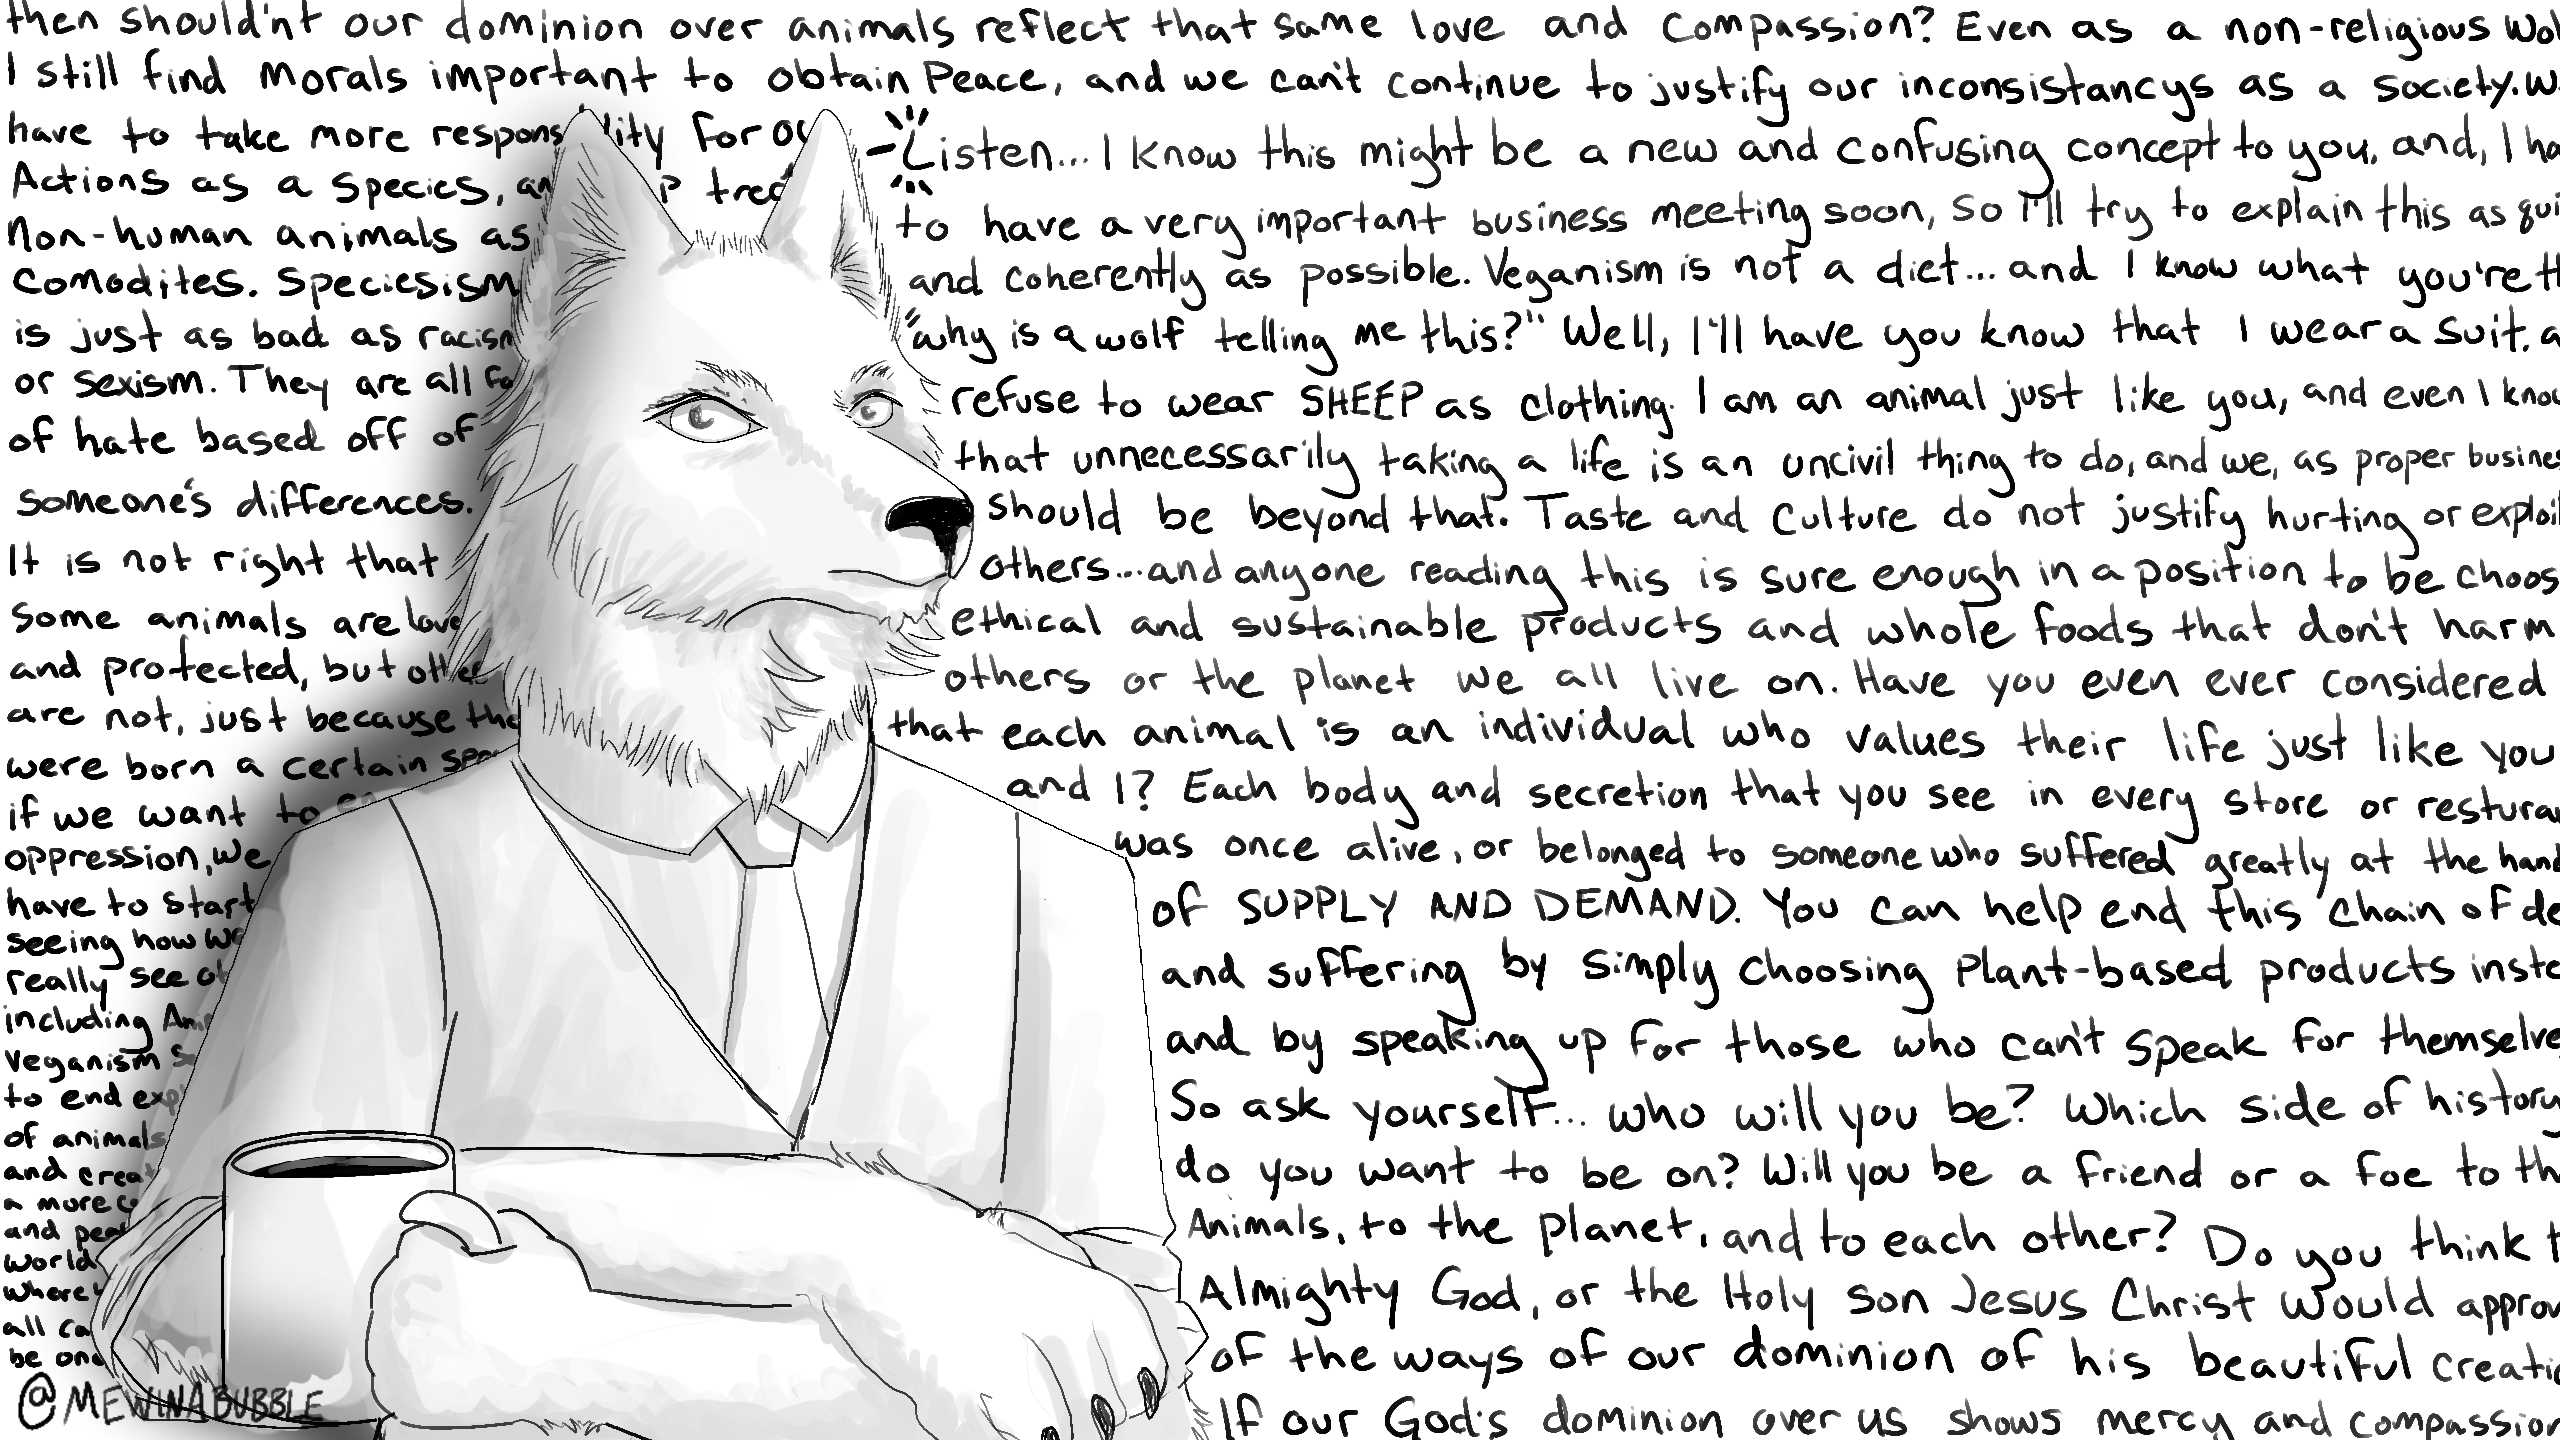 Listen... I know this might be a new and confusing concept to you, and, I
to have a very important business meeting soon, so I'll try to explain this as
and coherently as possible. Veganism is not a diet... and I know what you're
"why is a wolf telling me this?" Well, I'll have you know that I wear a suit.
refuse to wear SHEEP as clothing. I am an animal just like you, and even I
that unnecessarily taking a life is an uncivil thing to do, and we, as proper
should be beyond that. Taste and Culture do not justify hurting or
others... and anyone reading this is sure enough in a position to be
ethical and sustainable products and whole foods that don't harm
others or the planet we all live on. Have you even ever considered
that each animal is an individual who values their life just like you
and I? Each body and secretion that you see in every store or
was once alive, or belonged to someone who suffered greatly at the
of SUPPLY AND DEMAND. You can help end this chain of
and suffering by simply choosing Plant-based products
and by speaking up for those who can't speak for
So ask yourself... who will you be? Which side of history
do you want to be on? Will you be a friend or a foe to
Animals, to the planet, and to each other? Do you think
Almighty God, or the Holy son Jesus Christ would
of the ways of our dominion of his beautiful
If our God's dominion over us shows mercy and compassion
then should'nt our dominion over animals reflect that same love and compassion? Even as a non-religious
I still find morals important to obtain Peace, and we can't continue to justify our inconsistancys as a society.
have to take more for
Actions as a species,
Non-human animals as
Comodites. Speciesism
is just as bad as
or sexism. They are all
of hate based off of
someone's differences.
It is not right that
some animals are
and protected, but
are not, just because
were born a certain
if we want to
oppression, we
have to start
seeing how
really see
including
Veganism
to end
of animals
and
a more
and
world
where
all
be
@MEWINABUBBLE